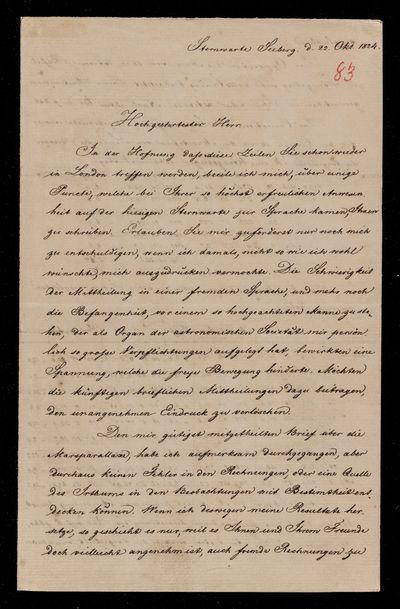 Sternwarte Seeberg d. 22. Okt 1824.
83
Hochgeehrtester Herr
In der Hofnung daß diese Zeilen Sie schon wieder
in London treffen werden, beeile ich mich, über einige
Puncte, welche bei Ihrer so höchst erfreulichen Anwesen
heit auf der hiesigen Sternwarte zur Sprache kamen,
zu schreiben. Erlauben Sie mir zuförderst nur noch mich
zu entschuldigen, wenn ich damals, nicht so wie ich wohl
wünschte, mich auszudrücken vermochte. Die Schwierigkeit
der Mittheilung in einer fremden Sprache, und mehr noch
die Befangenheit, vor einem so hochgeachteten Manne zu ste
hen, der als Organ der astronomischen Societät mir persön
lich so große Verpflichtungen aufgelegt hat, bewirkten eine
Spannung, welche die freye Bewegung hinderte. Möchten
die künftigen brieflichen Mittheilungen dazu beitragen,
den unangenehmen Eindruck zu verlöschen.
Den mir gütigst mitgetheilten Brief über die
Marsparallaxe, habe ich aufmerksam durchgegangen, aber
durchaus keinen Fehler in den Rechnungen, oder eine Quelle
des Irthums in den Beobachtungen mit Bestimtheit ent
decken können. Wenn ich deswegen meine Resultate her
setze, so geschieht es nur, weil es Ihnen und Ihrem Freunde
doch vielleicht angenehm ist, auch fremde Rechnungen zu